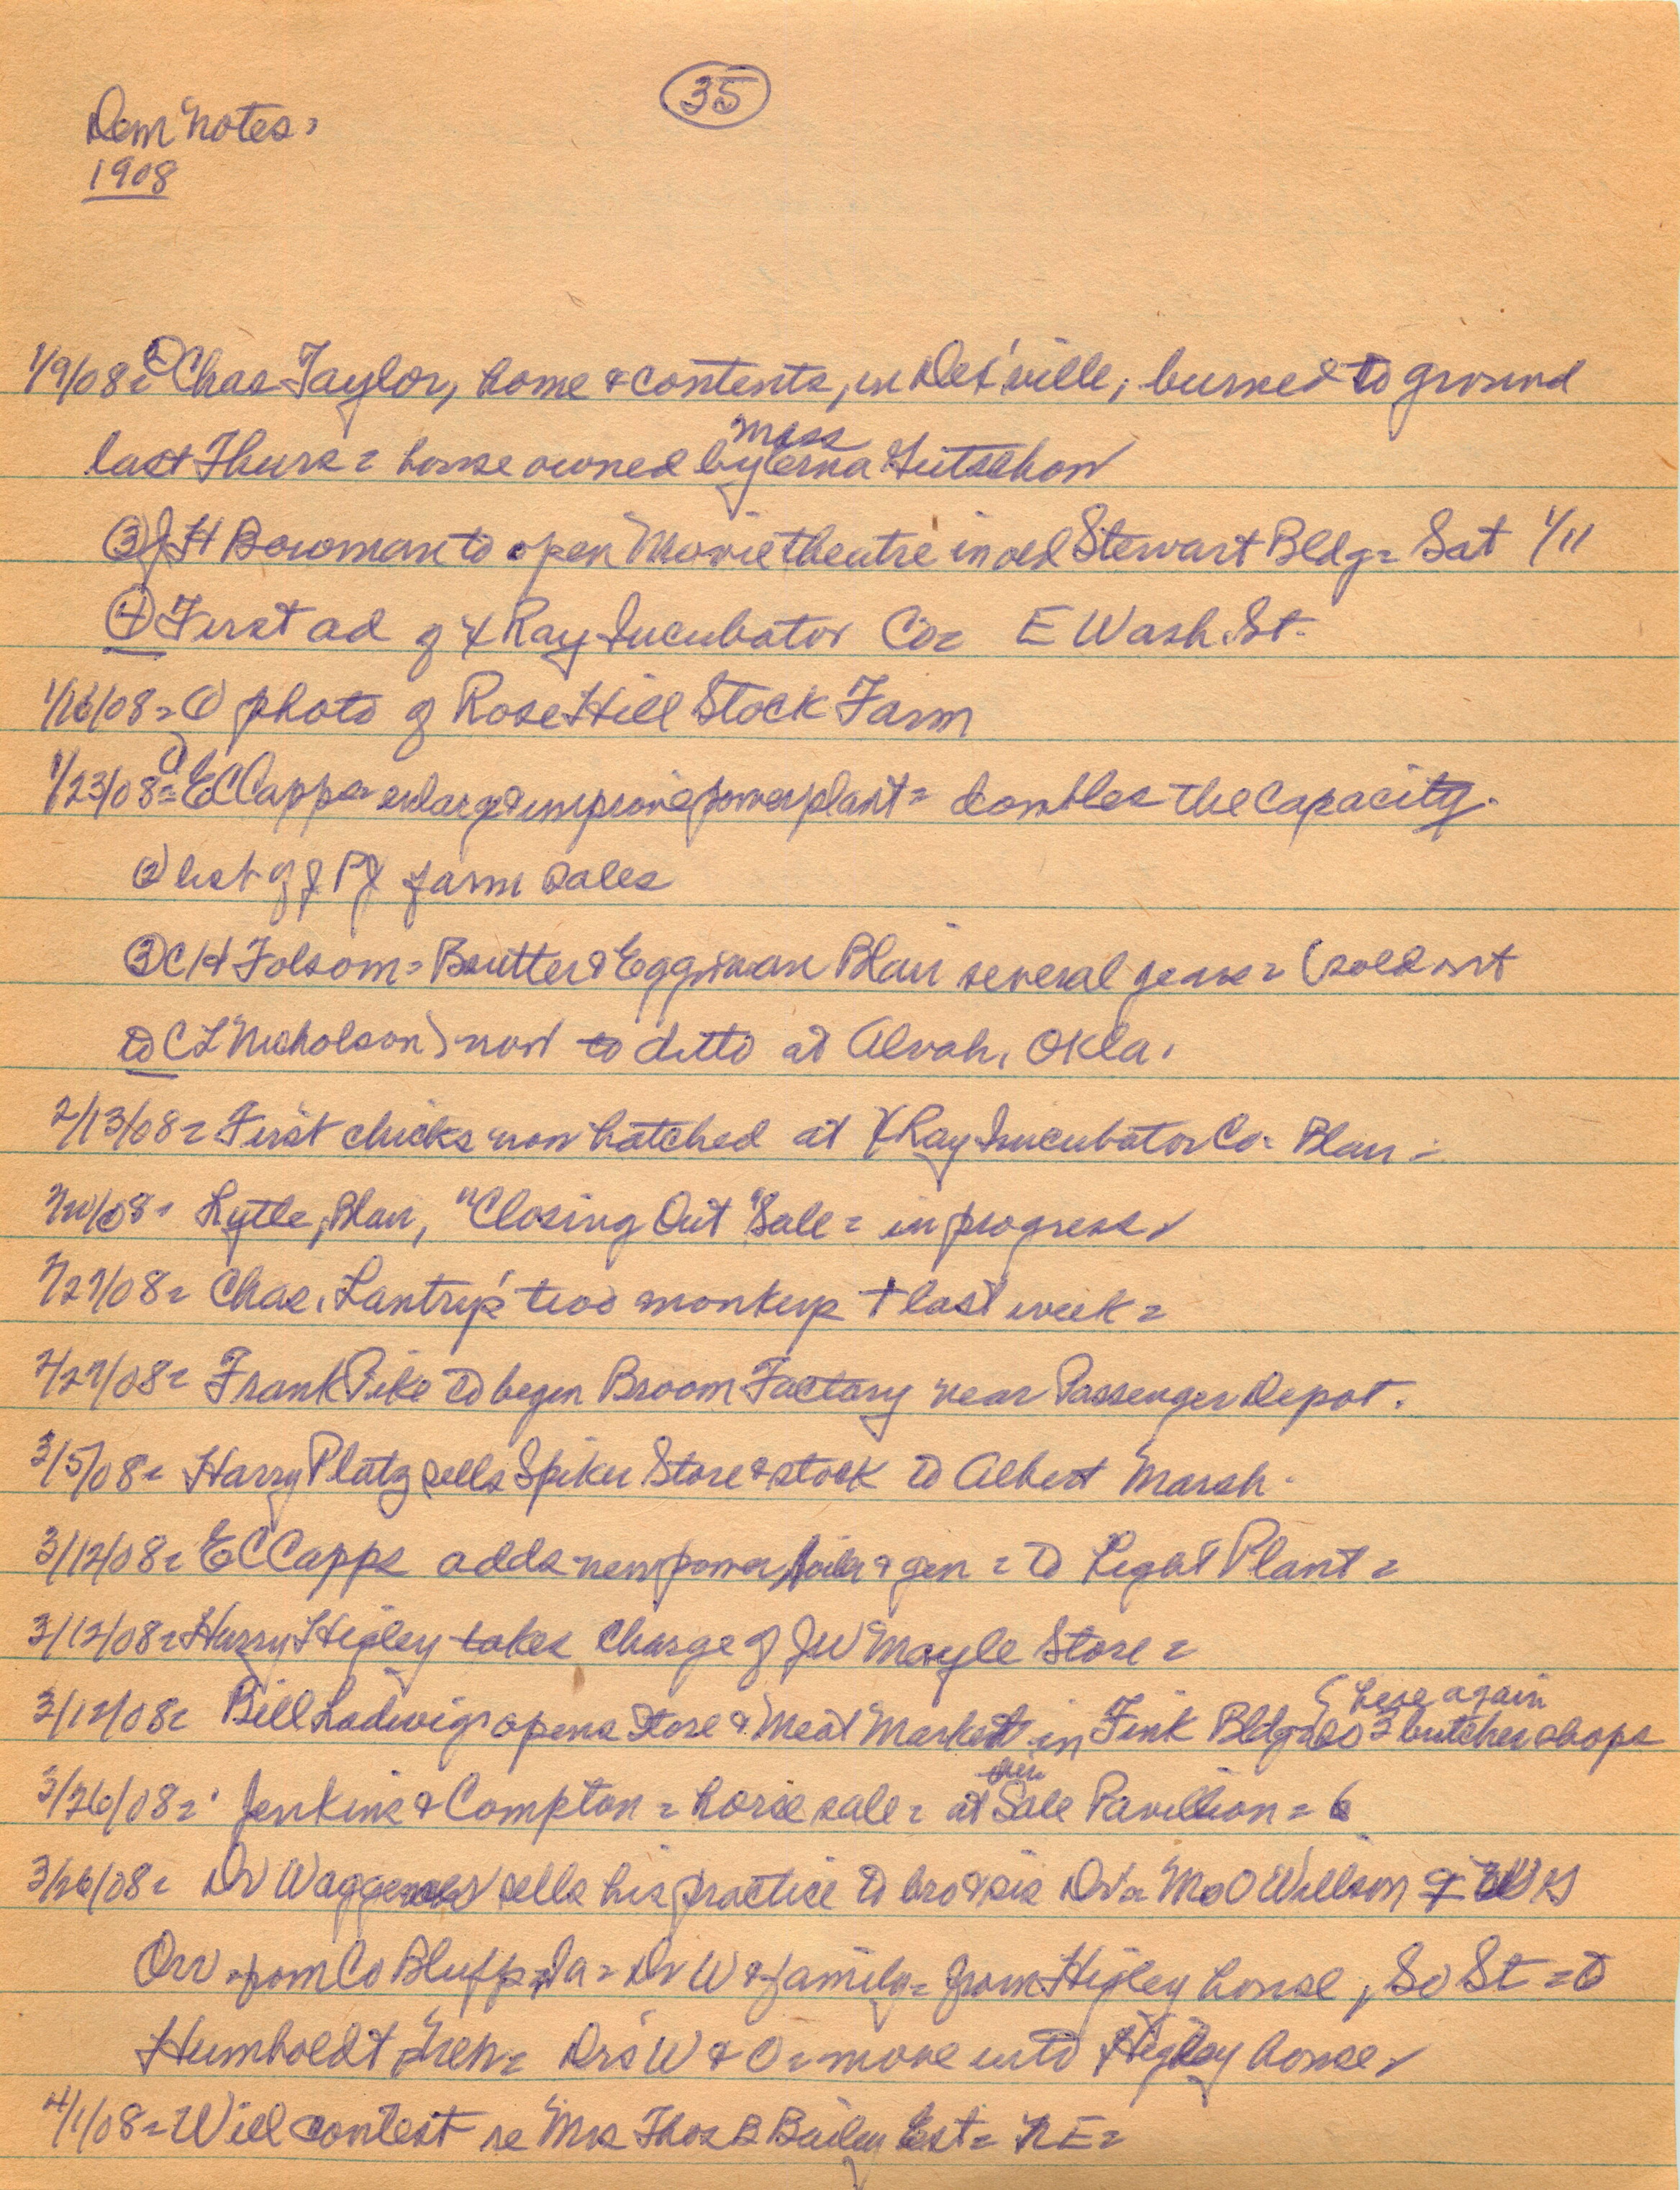 35
Dem Notes =
1908
1/9/08 = ② Chas Taylor, home & contents, in DeS'ville, burned to ground
last Thurs = house owned by Miss Erna Gutschow
③ J H Bowman to open Movie theatre in old Stewart Bldg = Sat 1/11
④ First ad of X Ray Incubator Co = E Wash. St.
1/16/08 = ① photo of Rose Hill Stock Farm
1/23/08 = ① E C Capps enlarge & improve power plant = doubles the capacity.
② list of farm sales
③ C H Folsom = Butter & Egg man Blair several years = (sold out
to C L Nicholson) now to ditto at Alvah, Okla.
2/13/08 = First chicks now hatched at X Ray Incubator Co = Blair =
2/20/08 = Lytle, Blair, "Closing Out" Sale = in progress
2/27/08 = Chas. Lantry's two monkeys † last week =
2/27/08 = Frank Pike to begin Broom Factory near Passenger Depot.
3/5/08 = Harry Platz sells Spiker Store & stock to Albert Marsh.
3/12/08 = E C Capps adds new power, boiler & gen = to Light Plant =
3/12/08 = Harry Higley takes charge of J W Mayle Store =
3/12/08 = Bill Ladwig opens Store & Meat Market in Fink Bldg = so 3 butcher shops (here again
3/26/08 = Jenkins & Compton = horse sale = at Sale Pavillion = 6
3/26/08 = Dr Waggener sells his practice to bro & sis Drs = M O Willson &
Orr = from Co Bluffs, Ia = Dr W & family = from Higley house, So St = to
Humboldt, Neb = Drs W & O = move into Higley house
4/1/08 = Will contest re Mrs Thos B Bailey Est = N E =